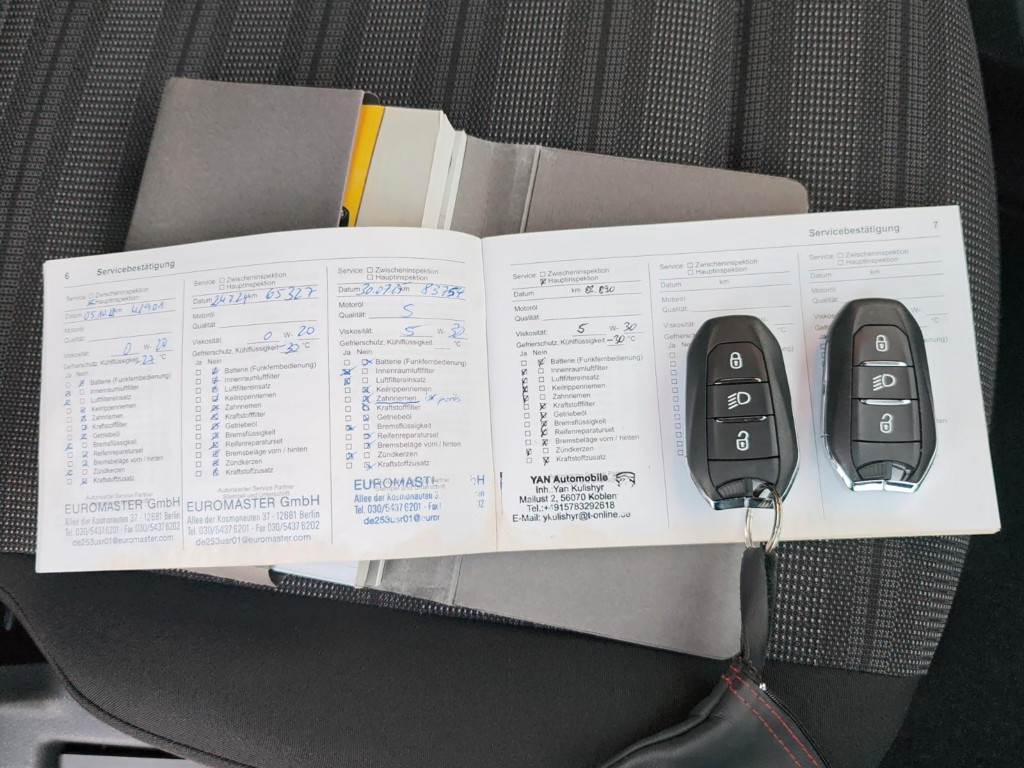 6 Servicebestätigung
Service: ☐ Zwischeninspektion
☒ Hauptinspektion
Datum 05.10 km 41901
Motoröl
Qualität:
Viskosität: 0 W- 20
Gefrierschutz, Kühlflüssigkeit °C
Ja Nein
Batterie (Funkfernbedienung)
Innenraumluftfilter
Luftfiltereinsatz
Keilrippenriemen
Zahnriemen
Kraftstofffilter
Getriebeöl
Bremsflüssigkeit
Reifenreparaturset
Bremsbeläge vorn / hinten
Zündkerzen
Kraftstoffzusatz
EUROMASTER GmbH
Allee der Kosmonauten 37 - 12681 Berlin
Tel. 030/5437 6201 - Fax 030/5437 6202
de253usr01@euromaster.com
Service: ☐ Zwischeninspektion
☐ Hauptinspektion
Datum km 65327
Motoröl
Qualität:
Viskosität: 0 W- 20
Gefrierschutz, Kühlflüssigkeit -32 °C
Ja Nein
Batterie (Funkfernbedienung)
Innenraumluftfilter
Luftfiltereinsatz
Keilrippenriemen
Zahnriemen
Kraftstofffilter
Getriebeöl
Bremsflüssigkeit
Reifenreparaturset
Bremsbeläge vorn / hinten
Zündkerzen
Kraftstoffzusatz
EUROMASTER GmbH
Allee der Kosmonauten 37 - 12681 Berlin
Tel. 030/5437 6201 - Fax 030/5437 6202
de253usr01@euromaster.com
Service: ☐ Zwischeninspektion
☐ Hauptinspektion
Datum 30.07 km 83754
Motoröl
Qualität: 5
Viskosität: 5 W- 30
Gefrierschutz, Kühlflüssigkeit °C
Ja Nein
Batterie (Funkfernbedienung)
Innenraumluftfilter
Luftfiltereinsatz
Keilrippenriemen
Zahnriemen
Kraftstofffilter
Getriebeöl
Bremsflüssigkeit
Reifenreparaturset
Bremsbeläge vorn / hinten
Zündkerzen
Kraftstoffzusatz
EUROMAST H
Allee der Kosmonauten 3
Tel. 030/5437 6201 - Fax
de253usr01@euror
Servicebestätigung 7
Service: ☐ Zwischeninspektion
☒ Hauptinspektion
Datum km
Motoröl
Qualität:
Viskosität: 5 W- 30
Gefrierschutz, Kühlflüssigkeit -30 °C
Ja Nein
Batterie (Funkfernbedienung)
Innenraumluftfilter
Luftfiltereinsatz
Keilrippenriemen
Zahnriemen
Kraftstofffilter
Getriebeöl
Bremsflüssigkeit
Reifenreparaturset
Bremsbeläge vorn / hinten
Zündkerzen
Kraftstoffzusatz
YAN Automobile
Inh. Yan Kulishyr
Mailust 2, 56070 Koblen
Tel.:+4915783292618
E-Mail: ykulishyr@t-online.de
Service: ☐ Zwischeninspektion
☐ Hauptinspektion
Datum km
Motoröl
Qualität:
Service: ☐ Zwischeninspektion
☐ Hauptinspektion
Datum km